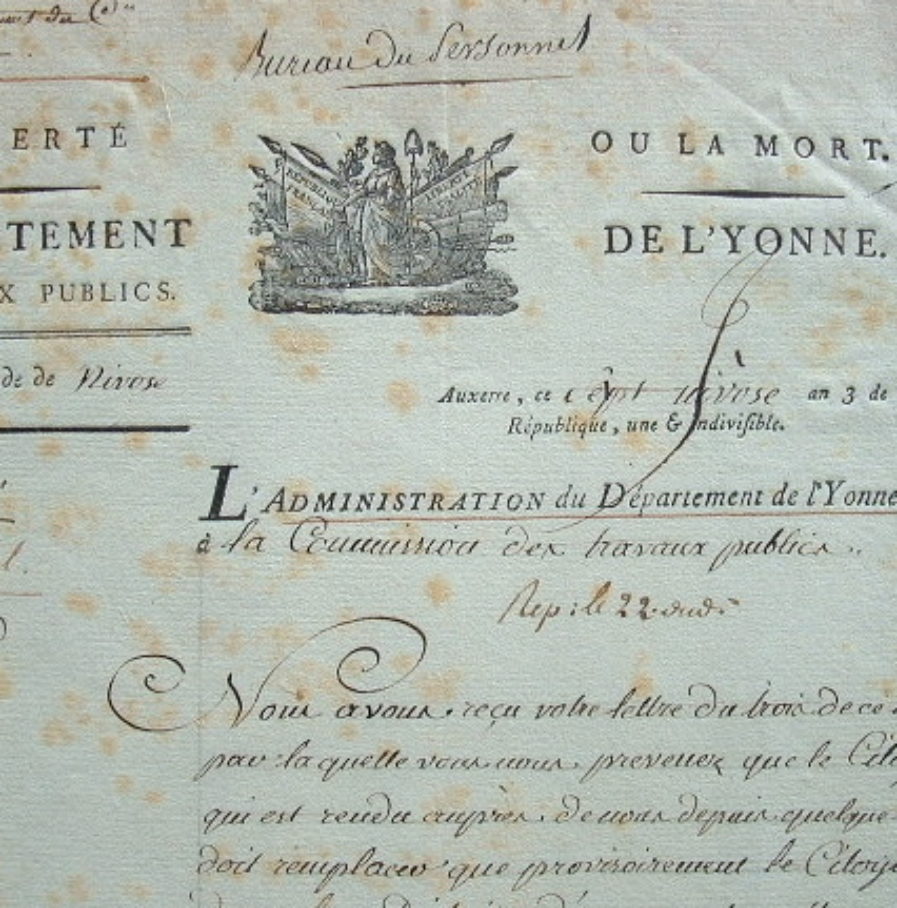 Bureau Du Personnel
ERTÉ OU LA MORT.
RÉPUBLIQUE
FRANÇ
TEMENT DE L'YONNE.
X PUBLICS.
de de Nivose
Auxerre, ce sépt nivòse an 3 de
République, une & indivisible.
L'ADMINISTRATION du Département de l'Yonne
à la Commission des travaux publics.
Rep: le 22. dudi
Nous avons reçu votre lettre du trois de ce
par laquelle vous nous prevenez que le
qui est rendu auprès de nous depuis quelque
doit remplacer que provisoirement le Citoye